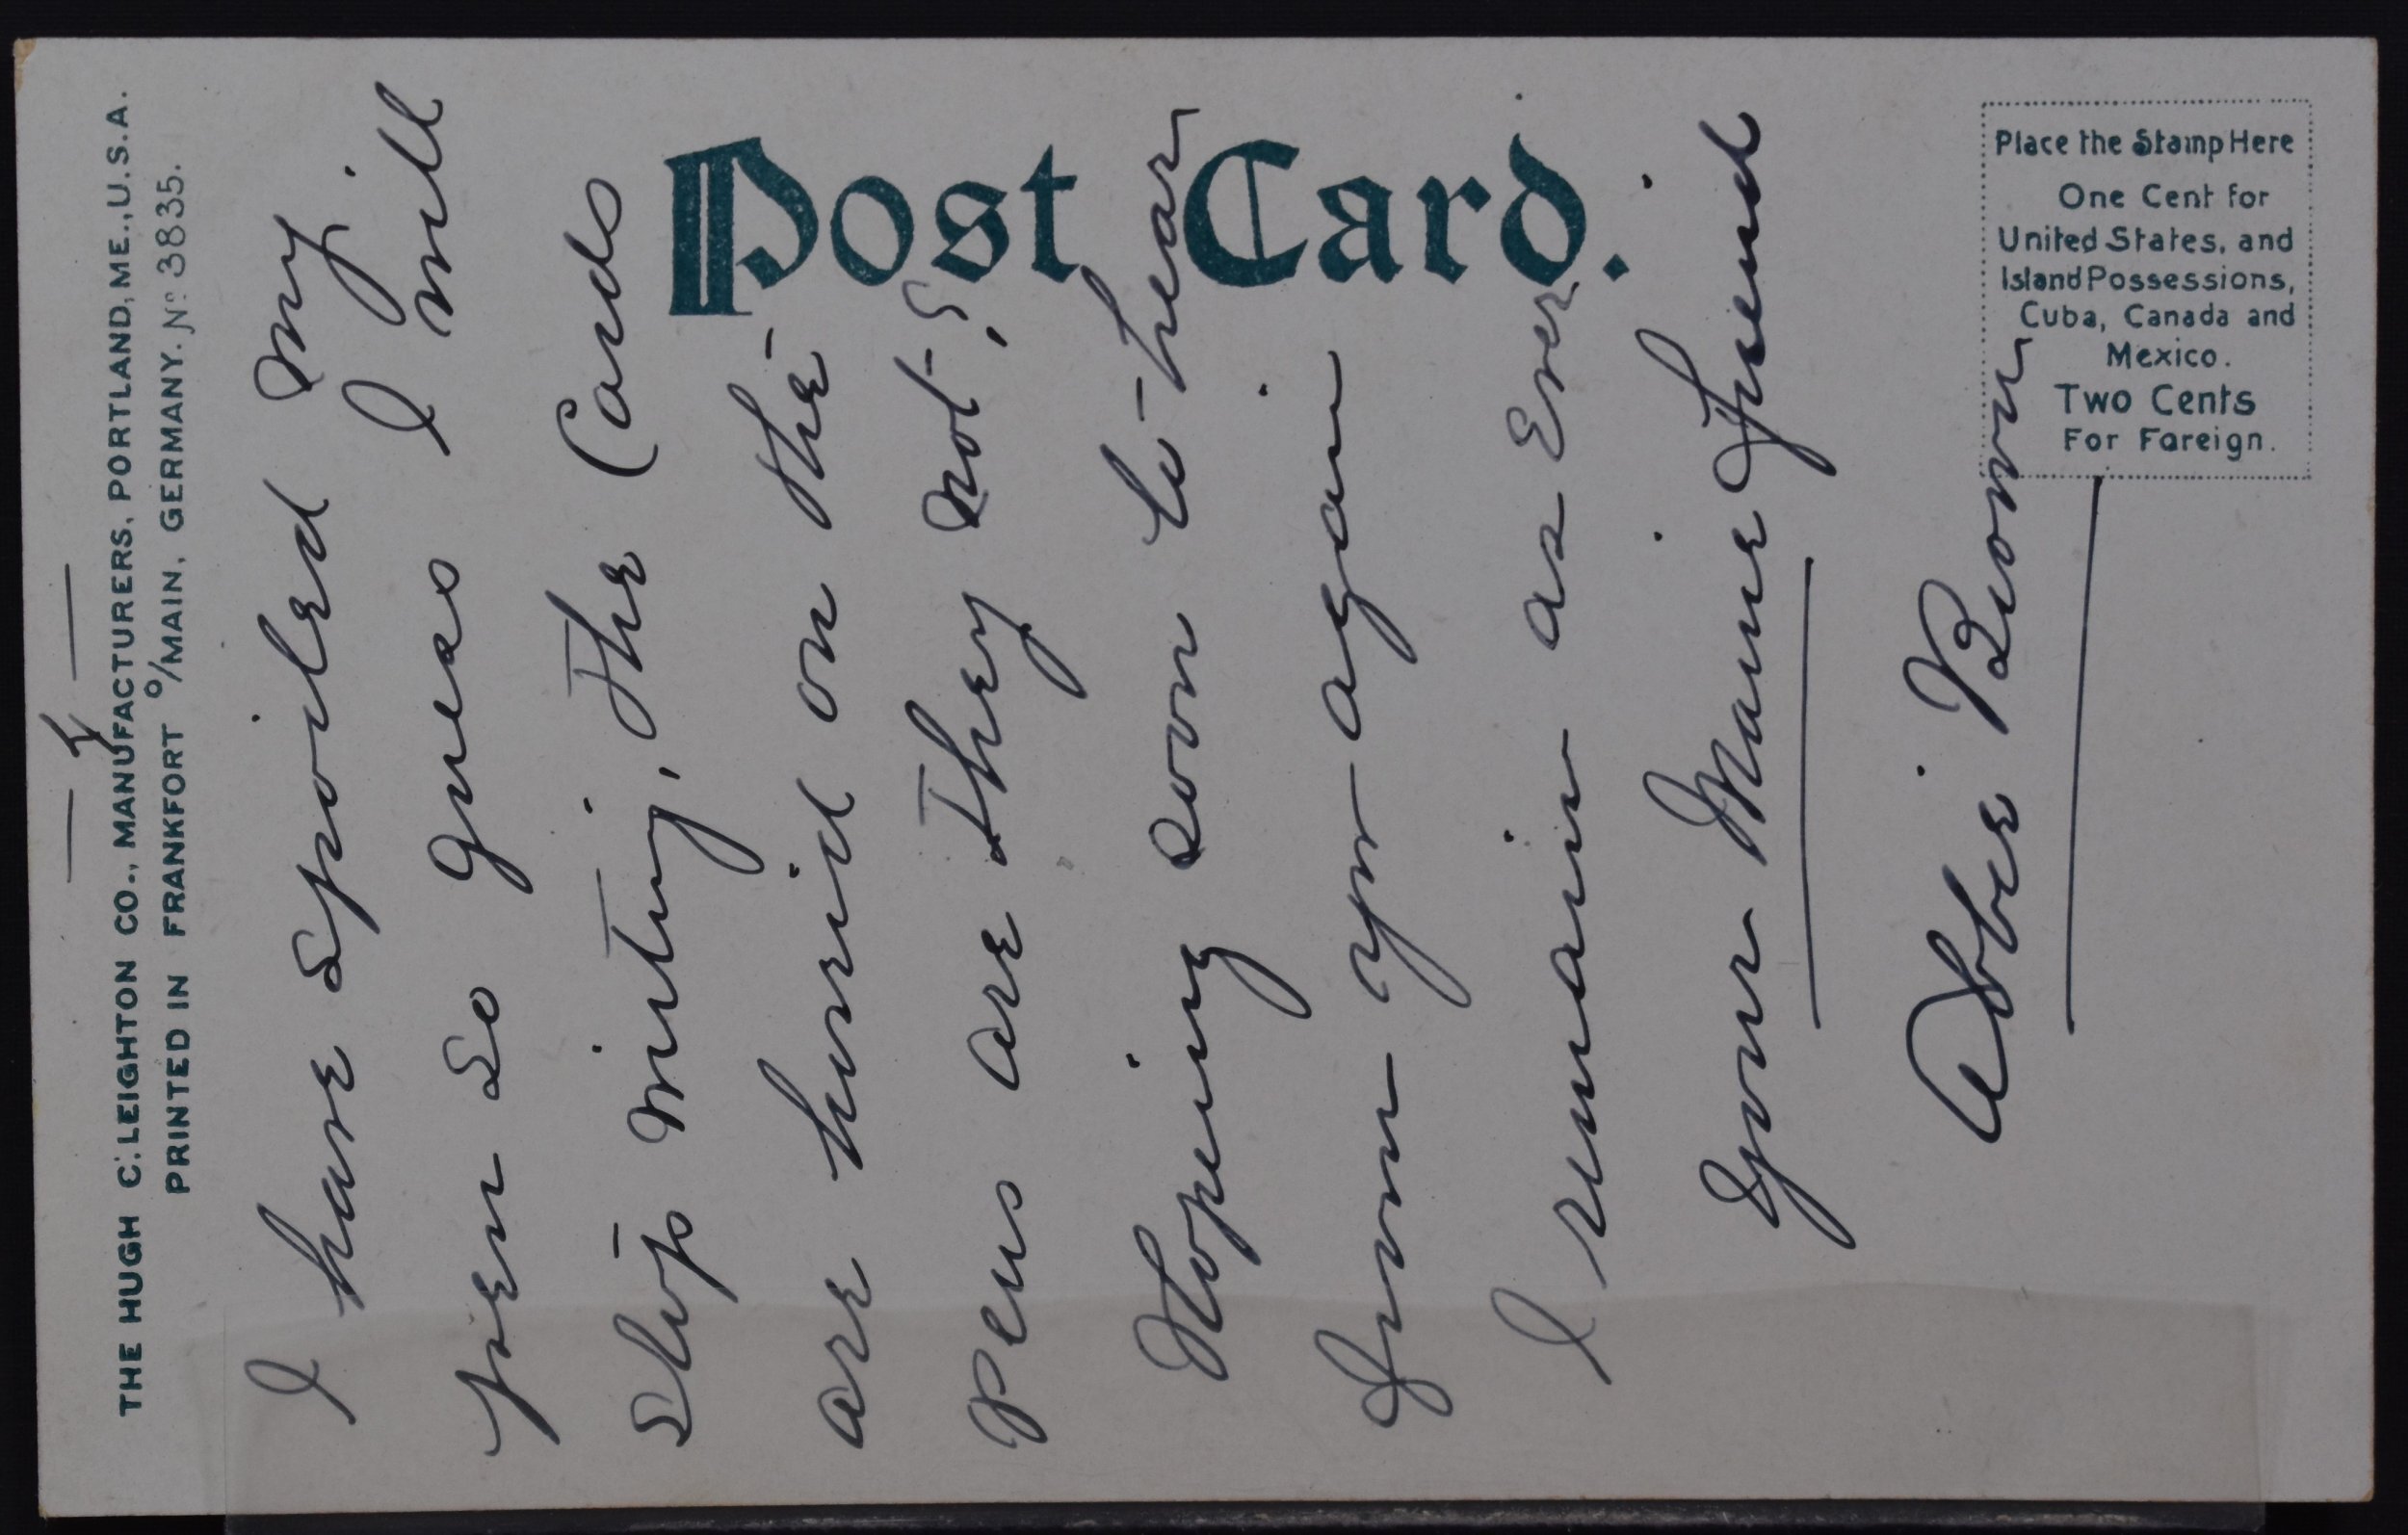 THE HUGH C. LEIGHTON CO., MANUFACTURERS, PORTLAND, ME., U.S.A.
PRINTED IN FRANKFORT o/MAIN, GERMANY. No. 3835.
Post Card.
Place the Stamp Here
One Cent for
United States, and
Island Possessions,
Cuba, Canada and
Mexico.
Two Cents
For Foreign.
4
I have spoiled my
pen so guess I will
stop writing, The Cards
are horrid on the
pens are they not?
Hoping soon to hear
from you again
I remain as Ever
Your Maine friend
Abbie Brown